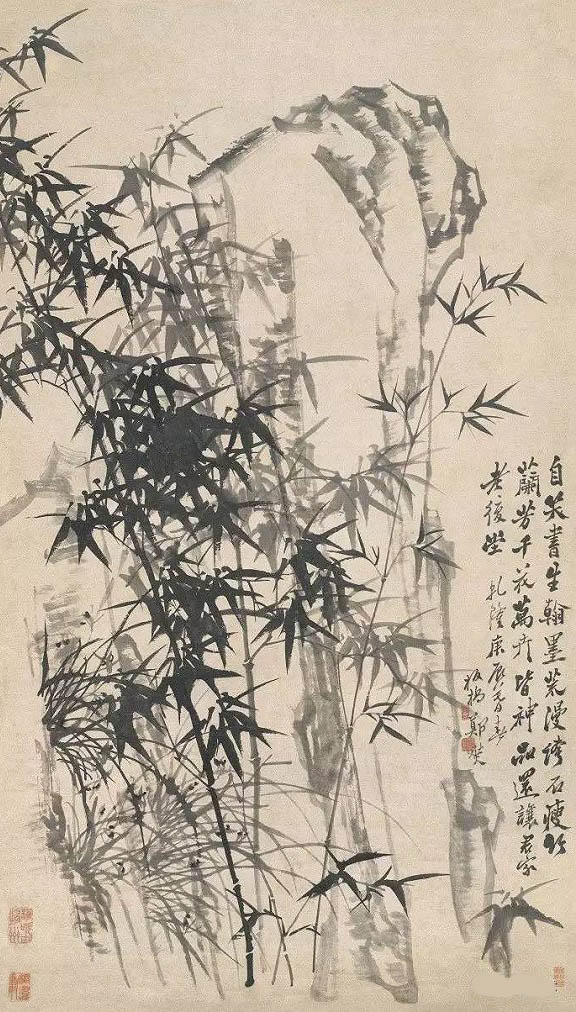 自笑書生翰墨荒漫誇石瘦竹
蘭芳千花萬卉皆神品還讓君家
老後
乾隆庚辰春
板橋鄭燮